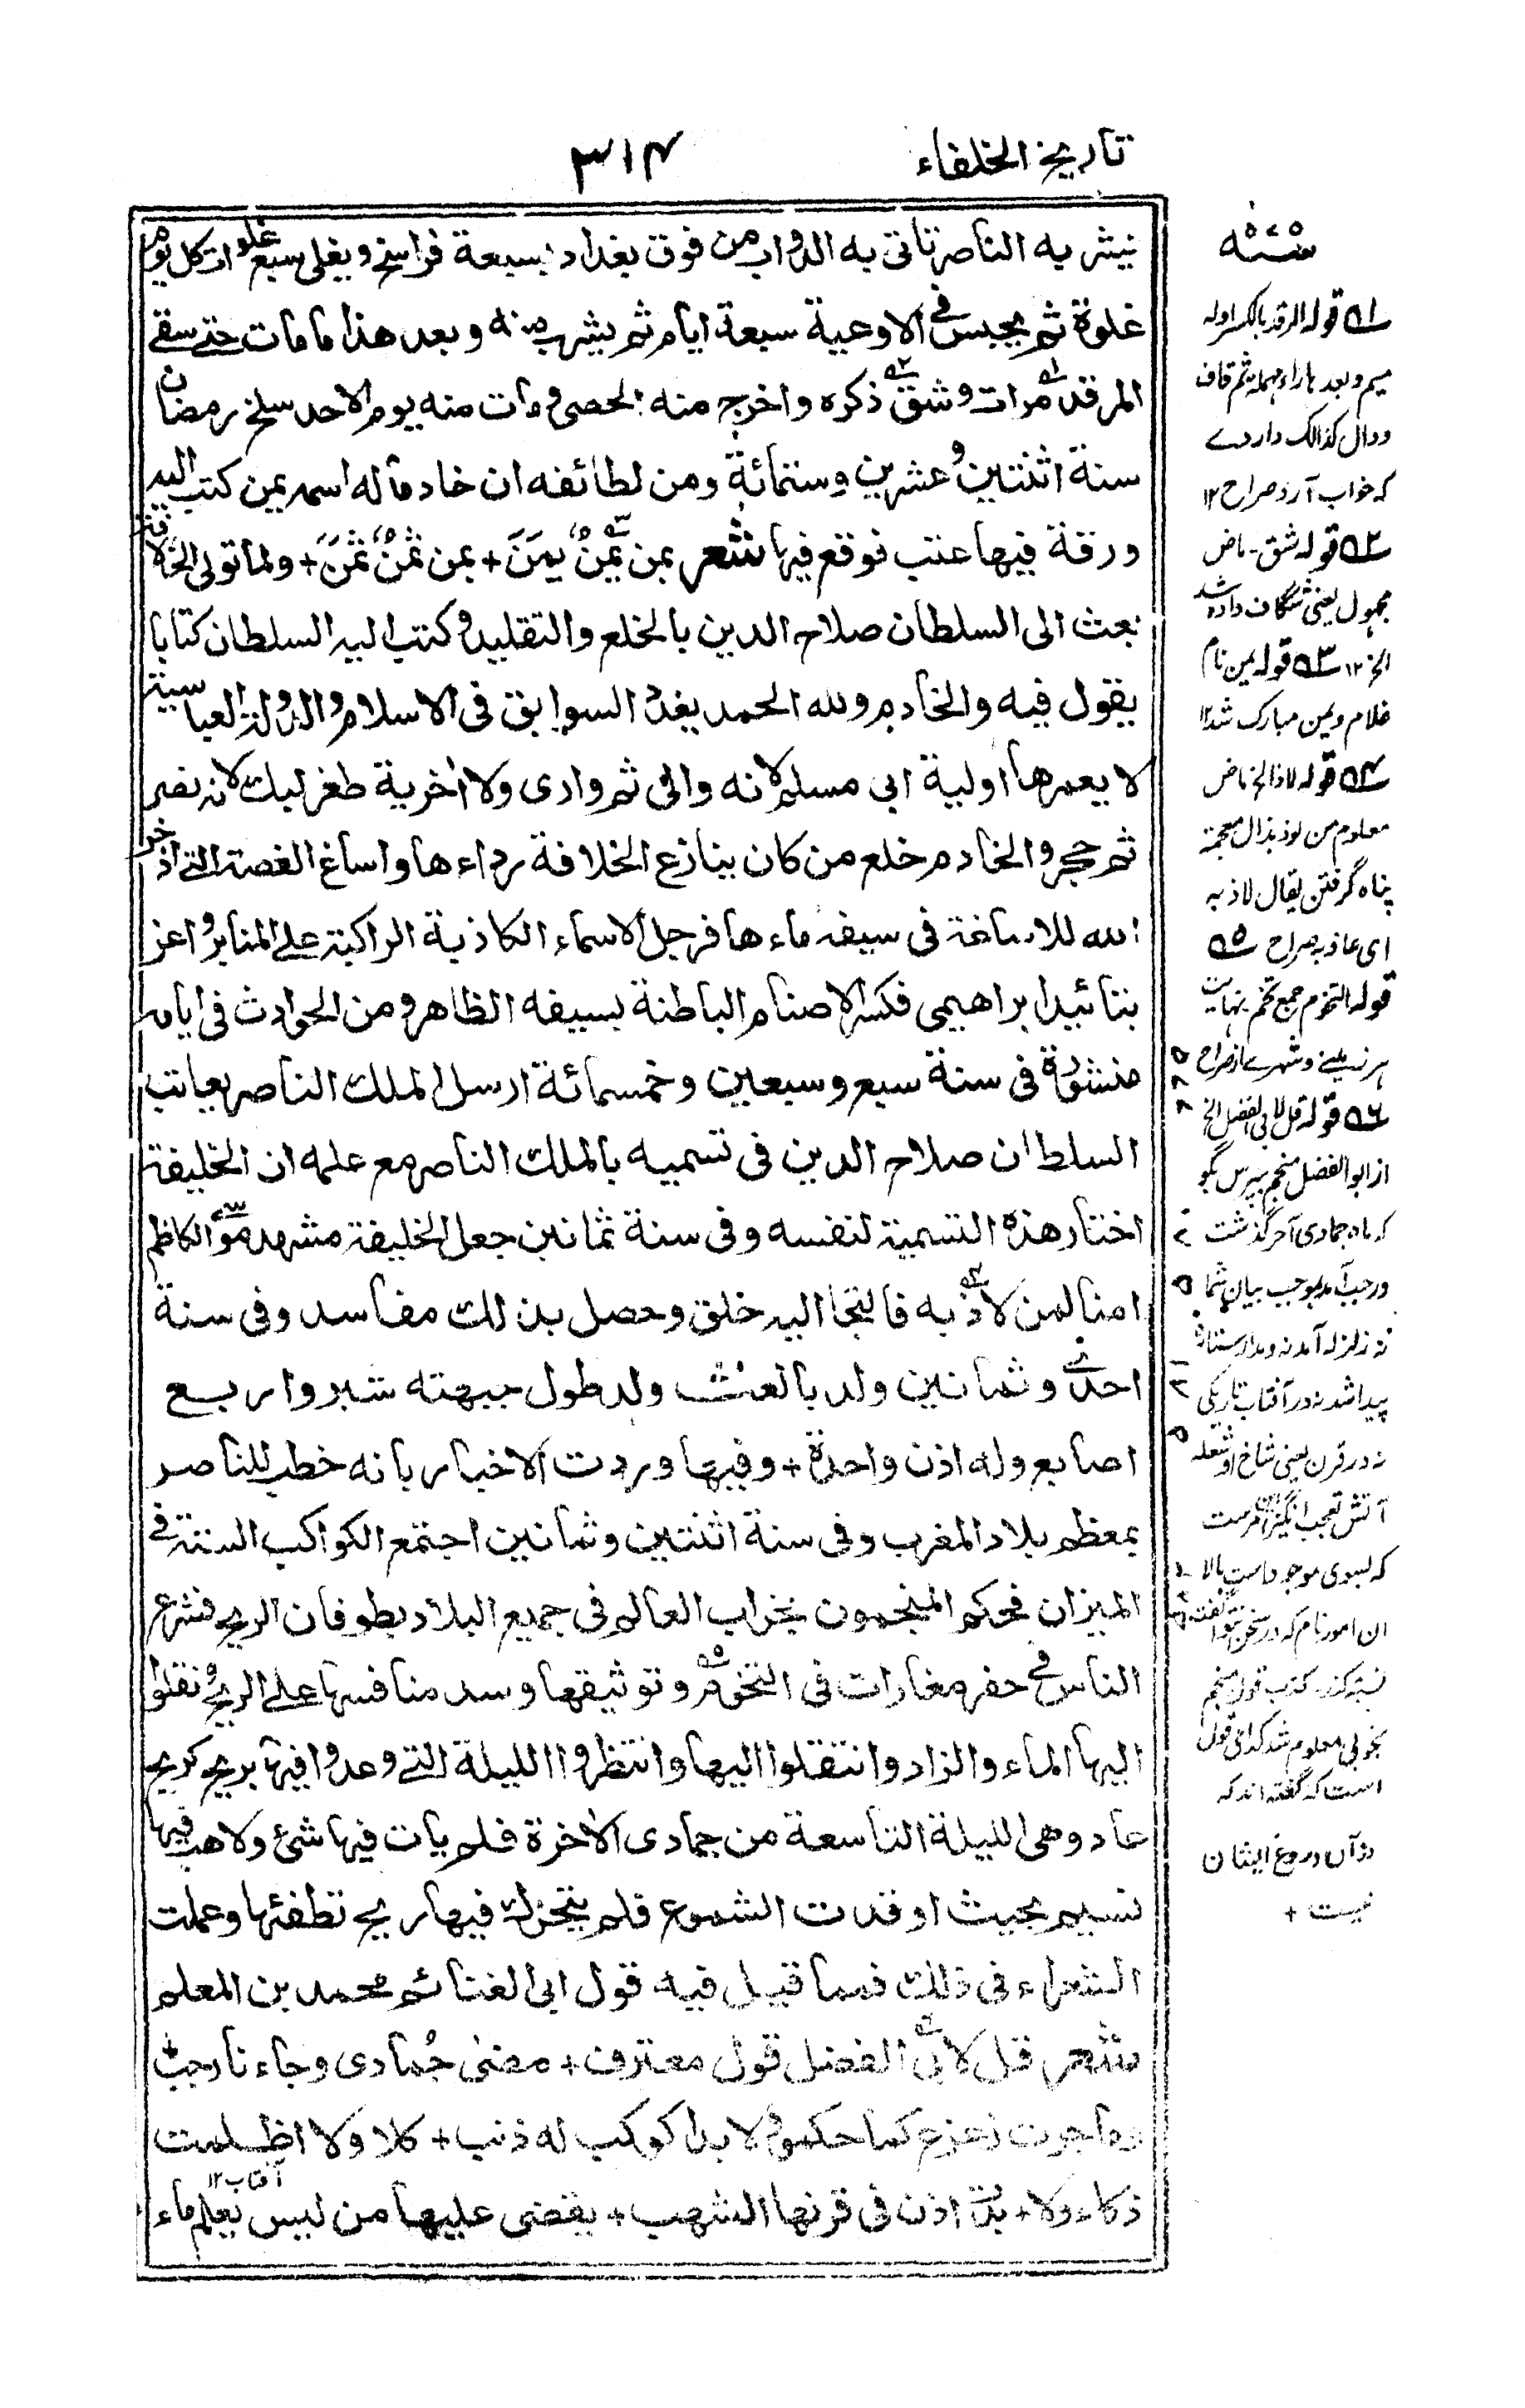 تاريخ الخلفاء
٣١٤
يشربه الناصر تاتى به الدواب من فوق بغداد بسبعة فراسخ ويغلى سبع غلوات كل يوم
غلوة ثم يحبس فى الاوعية سبعة ايام ثم يشرب منه وبعد هذا ما مات حتى سقى
المرقد مرات وشق ذكره واخرج منه الحصى ومات منه يوم الاحد سلخ رمضان
سنة اثنتين وعشرين وستمائة ومن لطائفه ان خادما له اسمه يمن كتب اليه
ورقة فيها عتب فوقع فيها شعر بمن يَمُنُّ يمن + بمن ثَمُنُ ثَمَنَ + ولما تولى الخلافة
بعث الى السلطان صلاح الدين بالخلع والتقليد وكتب اليه السلطان كتابا
يقول فيه والخادم ولله الحمد يعدّ السوابق فى الاسلام والدولة العباسية
لا يعمرها اولية ابى مسلم لانه والى ثم وارى ولا اٰخرية طغرلبك لانه نصر
ثم حجر والخادم خلع من كان ينازع الخلافة رداءها واساغ الغصة التى اذخر
الله للاساغة فى سيفه ماءها فرجل الاسماء الكاذبة الراكبة على المنابر واعز
بتائيد ابراهيمى فكسر الاصنام الباطنة بسيفه الظاهر ومن الحوادث فى ايامه
منشؤه فى سنة سبع وسبعين وخمسمائة ارسل الملك الناصر يعاتب
السلطان صلاح الدين فى تسميه بالملك الناصر مع علمه ان الخليفة
اختار هذه التسمية لنفسه وفى سنة ثمانين جعل الخليفة مشهد موسى الكاظم
امنا لمن لاذ به فالتجا اليه خلق وحصل بذلك مفاسد وفى سنة
احدى وثمانين ولد بالعلث ولد طول جبهته شبر واربع
اصابع وله اذن واحدة + وفيها وردت الاخبار بانه خطب للناصر
بمعظم بلاد المغرب وفى سنة اثنتين وثمانين اجتمع الكواكب الستة فى
الميزان فحكم المنجمون بخراب العالم فى جميع البلاد بطوفان الريح فشرع
الناس فى حفر مغارات فى التخوم وتوثيقها وسد منافسها على الريح ونقلوا
اليها الماء والزاد وانتقلوا اليها وانتظروا الليلة التى وعدوا فيها بريح كريح
عاد وهى الليلة التاسعة من جمادى الاٰخرة فلم يات فيها شئ ولا هب فيها
نسيم بحيث اوقدت الشموع فلم يتحرك فيها ريح تطفئها وعملت
الشعراء فى ذلك فمما قيل فيه قول ابى الغنائم محمد بن المعلم
شعر قل لابى الفضل قول معترف + مضى جُمادى وجاءنا رجب
وما جرت زعزع كما حكموا + ولا بدا كوكب له ذنب + كلا ولا اظلمت
ذكاء ولا + بدّت اذن فى قرنها الشهب + يقضى عليها من ليس يعلم ماء
آفتاب ١٢
سنه
١ قوله المرقد بالكسر اوله
ميم وبعد ها راء مهمله ثم قاف
ودال كذالك داروے
كه خواب آرد صراح ١٢
٢ قوله شق - ماض
مجهول يعنى شگاف داده شد
الخ ١٢ ٣ قوله يمن نام
غلام ويمن مبارك شد ١٢
٤ قوله لاذ الخ ماض
معلوم من لوذ بذال معجمة
پناه گرفتن يقال لاذ به
اى عاذ به صراح ٥
قوله التخوم جمع تخم نهايت
هر زمينے وشهرے از صراح
٦ قوله قل لابى الفضل الخ
از ابو الفضل منجم بپرس بگو
كه ماه جمادى آخر گذشت
ورجب آمد بموجب بيان شما
نه زلزله آمد نه دمدار ستاره
پيدا شد نه در آفتاب تاريكى
نه در قرن يعنى شاخ او شعله
آتش تعجب انگيز امرست
ان امور نام كه در
بخوبى معلوم شد كدامى قول
است كه گفته اند كه
در آن دروغ ايشان
نيست +